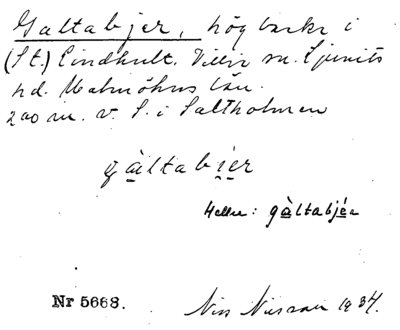 Galtabjer, hög backe i
(St.) Lindhult. Villie sn. Ljunits
hd. Malmöhus län.
200 m. v. S. i Saltholmen
gàltabi̯er
Heller: gàltabjér
Nr 5668.
Nils Nilsson 1934.